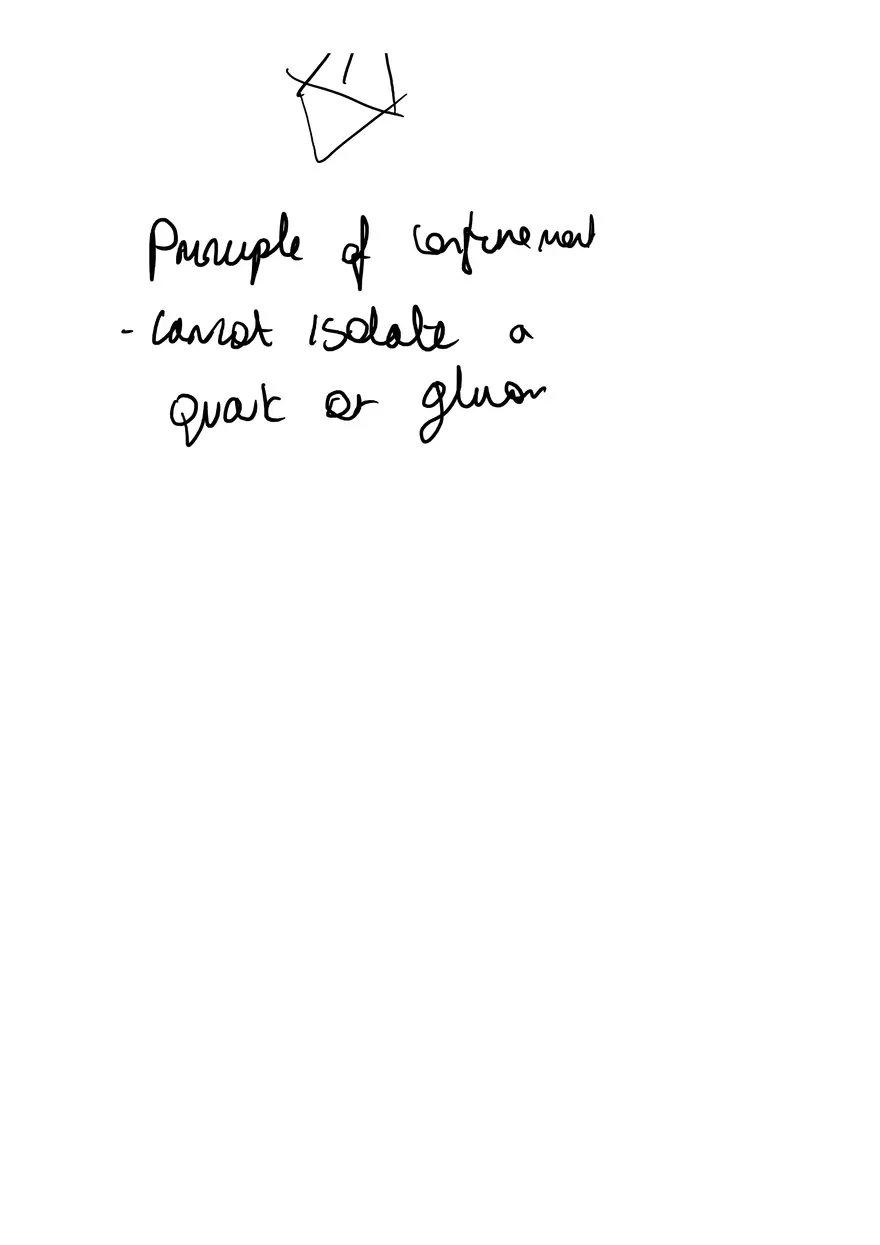 Principle of confinement
- cannot isolate a
quark or gluon